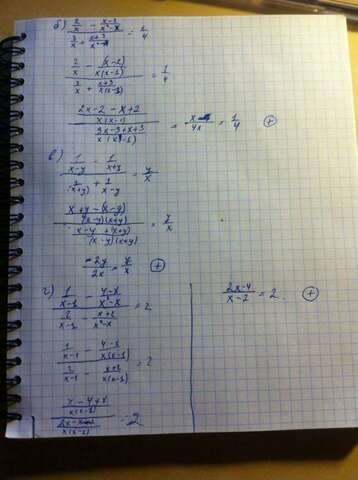 б) (2/x - (x-2)/(x²-x)) / (3/x + (x+3)/(x²-x)) = 1/4
(2/x - (x-2)/(x(x-1))) / (3/x + (x+3)/(x(x-1))) = 1/4
((2x-2-x+2)/(x(x-1))) / ((3x-3+x+3)/(x(x-1))) = x/4x = 1/4 ⊕
в) (1/(x-y) - 1/(x+y)) / (1/(x+y) + 1/(x-y)) = y/x
((x+y-(x-y))/((x-y)(x+y))) / ((x-y+(x+y))/((x-y)(x+y))) = y/x
2y/2x = y/x ⊕
г) (1/(x-1) - (4-x)/(x²-x)) / (2/(x-1) - (x+2)/(x²-x)) = 2
(1/(x-1) - (4-x)/(x(x-1))) / (2/(x-1) - (x+2)/(x(x-1))) = 2
((x-4+x)/(x(x-1))) / ((2x-x-2)/(x(x-1))) = 2
(2x-4)/(x-2) = 2 ⊕